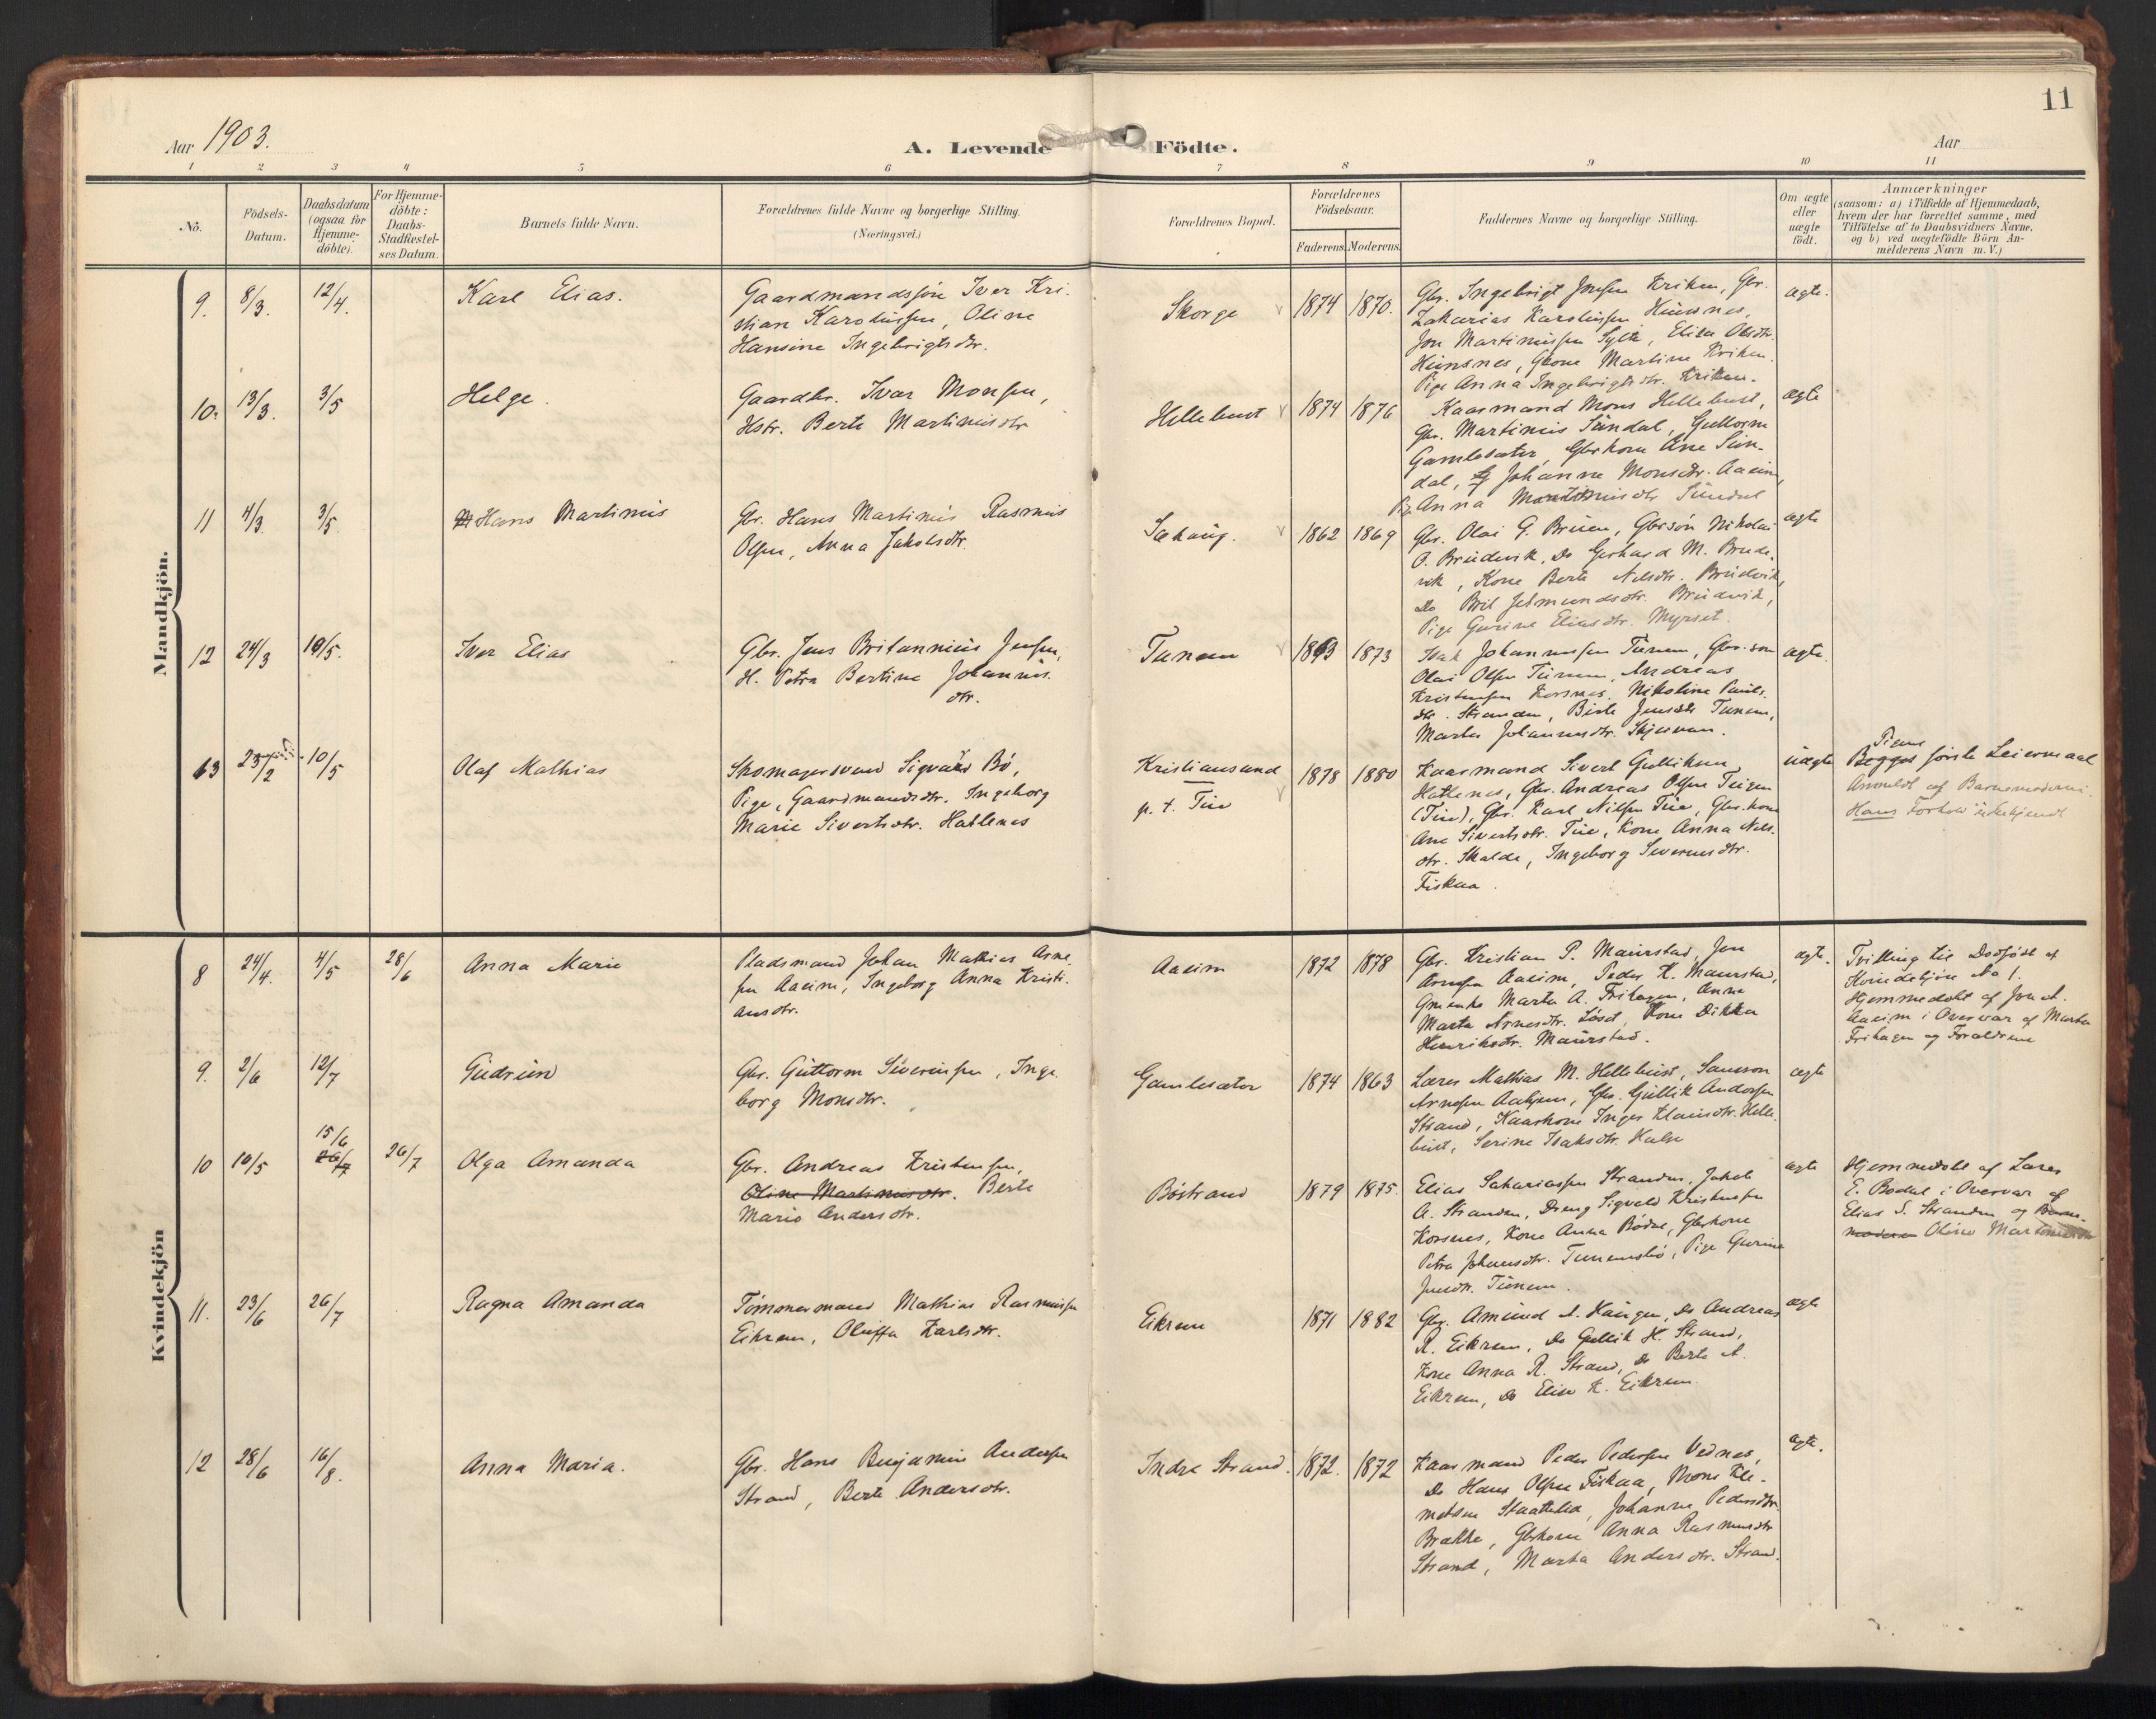 11
Aar 1903.
A. Levende Födte.
Aar
1 2 3 4 5 6 7 8 9 10 11
No.
Födsels-
Datum.
Daabsdatum
(ogsaa for
Hjemme-
döbte).
For Hjemme-
döbte:
Daabs-
Stadfæstel-
ses Datum.
Barnets fulde Navn.
Forældrenes fulde Navne og borgerlige Stilling.
(Næringsvei.)
Forældrenes Bopæl.
Forældrenes
Födselsaar.
Faderens. Moderens.
Faddernes Navne og borgerlige Stilling.
Om ægte
eller
uægte
födt.
Anmærkninger
(saasom: a) i Tilfælde af Hjemmedaab,
hvem der har forrettet samme, med
Tilföielse af to Daabsvidners Navne.
og b) ved uægtefödte Börn An-
melderens Navn m. V.)
Mandkjön.
9. 8/3. 12/4. Karl Elias.
Gaardmandssön Iver Kri-
stian Karolussen, Oline
Hansine Ingebrigtsdtr.
Skorge 1874 1870.
Gbr. Ingebrigt Jonsen Kriken, Gbr.
Zakarias Karolussen Hunsnes,
Jon Martinussen Sylte, Elisa Olsdtr.
Hunsnes, Gkone Martine Kriken.
Pige Anna Ingebrigtsdtr. Kriken.
ægte.
10. 13/3. 3/5 Helge.
Gaardbr. Ivar Monsen,
Hstr. Berte Martinusdtr
Hellebust 1874 1876
Kaarmand Mons Hellebust,
Gbr. Martinus Sundal, Guttorm
Gamlesæter, Gbrkone Ane Sun-
dal, Johanne Monsdtr. Aaeim,
Pig. Anna Martinusdtr Sundal
ægte
11 4/3 3/5. Hans Martinus
Gbr. Hans Martinus Rasmus
Olsen, Anna Jakobsdtr.
Sæhaug. 1862 1869
Gbr. Olai G. Bruen, Gbrsön Nikolai
O. Brudevik, Do Gerhard M. Brude-
vik, Kone Berte Nilsdtr. Brudevik,
Do Bril Jetmundsdtr. Brudevik,
Pige Gurine Eliasdtr. Myrset.
ægte
12 24/3 10/5. Iver Elias
Gbr. Jens Britannius Jensen,
H. Petra Bertine Johannes.
dtr.
Tunem 1863 1873
Isak Johannessen Tunem, Gbr. sön
Olai Olsen Tunem, Andreas
Kristensen Korsnes, Nikoline Pauls.
dtr. Stranden, Berte Jensdtr Tunem,
Marte Johannesdtr. Skjervan.
ægte.
13 23/2 10/5 Olaf Mathias
Skomagersvend Sigvard Bö,
Pige, Gaardmandsdtr. Ingeborg
Marie Sivertsdtr. Hatlenes
Kristiansund
p. t. Tue
1878 1880
Kaarmand Sivert Gulliksen
Hatlenes, Gbr. Andreas Olsen Teigen
(Tue), Gbr. Karl Nilsen Tue, Gbr. kone
Ane Sivertsdtr. Tue, Kone Anna Nils.
dtr. Skalde, Ingeborg Severinsdtr.
Fiskaa.
uægte
Pigens
Begges förste Leiermaal
Anmeldt af Barnemoderen.
Hans Forhold ubekjendt
Kvindekjön
8 24/4. 4/5 28/6 Anna Marie
Pladsmand Johan Mathias Arne-
sen Aaeim, Ingeborg Anna Kristi-
ansdtr.
Aaeim 1872 1878
Gbr. Kristian P. Maurstad, Jon
Arnesen Aaeim, Peder K. Maurstad,
Gmenke Marta A. Frihagen, Anne
Marta Arnesdtr. Löset, Kone Dikka
Henriksdtr. Maurstad.
ægte.
Tvilling til Dödfödt af
Kvindekjön No 1.
Hjemmedöbt af Jon A.
Aaeim i Overvær af Marta
Frihagen og Forældrene
9. 2/6 12/7 Gudrun
Gbr. Guttorm Severinsen, Inge-
borg Monsdtr.
Gamlesæter 1874 1863
Lærer Mathias M. Hellebust, Samson
Arnesen Aahjem, Gbr. Gullik Andersen
Strand, Kaarkone Inger Klausdtr. Helle
bust, Serine Isaksdtr. Hulse
ægte
10 10/5 15/6 26/7 26/7 Olga Amanda
Gbr. Andreas Kristensen,
Oline Martinusdtr. Berte
Marie Andersdtr.
Böstrand 1879 1875.
Elias Sakariassen Stranden, Jakob
A. Stranden, Dreng Sigvald Kristensen
Korsnes, Kone Anna Bödal, Gbrkone
Petra Johansdtr. Tunemsbö, Pige Gurine
Jensdtr. Tunem.
ægte
Hjemmedöbt af Lærer
E. Bödal i Overvær af
Elias S. Stranden og Barne-
moderen Oline Martinusdtr
11. 23/6 26/7 Ragna Amanda
Tömmermand Mathias Rasmussen
Eikrem, Oluffa Karlsdtr.
Eikrem 1871 1882
Gbr. Amund A. Haugen, Do Andreas
R. Eikrem, Do Gullik H. Strand,
Kone Anna R. Strand, Do Berte A.
Eikrem, Do Elise K. Eikrem.
ægte
12 28/6 16/8. Anna Maria.
Gbr. Hans Benjamin Andersen
Strand, Berte Andersdtr.
Indre Strand. 1872. 1872
Kaarmand Peder Pedersen Vednes,
Do Hans Olsen Fiskaa, Mons Kle-
metsen Staaheled, Johanne Pedersdtr.
Brække, Gbrkone Anna Rasmusdtr
Strand, Marta Andersdtr. Strand.
ægte.